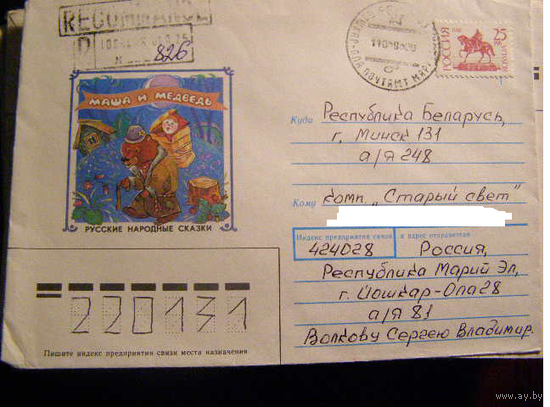 RECOMMANDE
826
РОССИЯ
25
МАША И МЕДВЕДЬ
РУССКИЕ НАРОДНЫЕ СКАЗКИ
Куда Республика Беларусь,
г. Минск 131
а/я 248
Кому комп. „Старый свет"
Индекс предприятия связи и адрес отправителя
424028 Россия,
Республика Марий Эл,
г. Йошкар-Ола 28
а/я 81
Волкову Сергею Владимир.
220131
Пишите индекс предприятия связи места назначения
www.ay.by